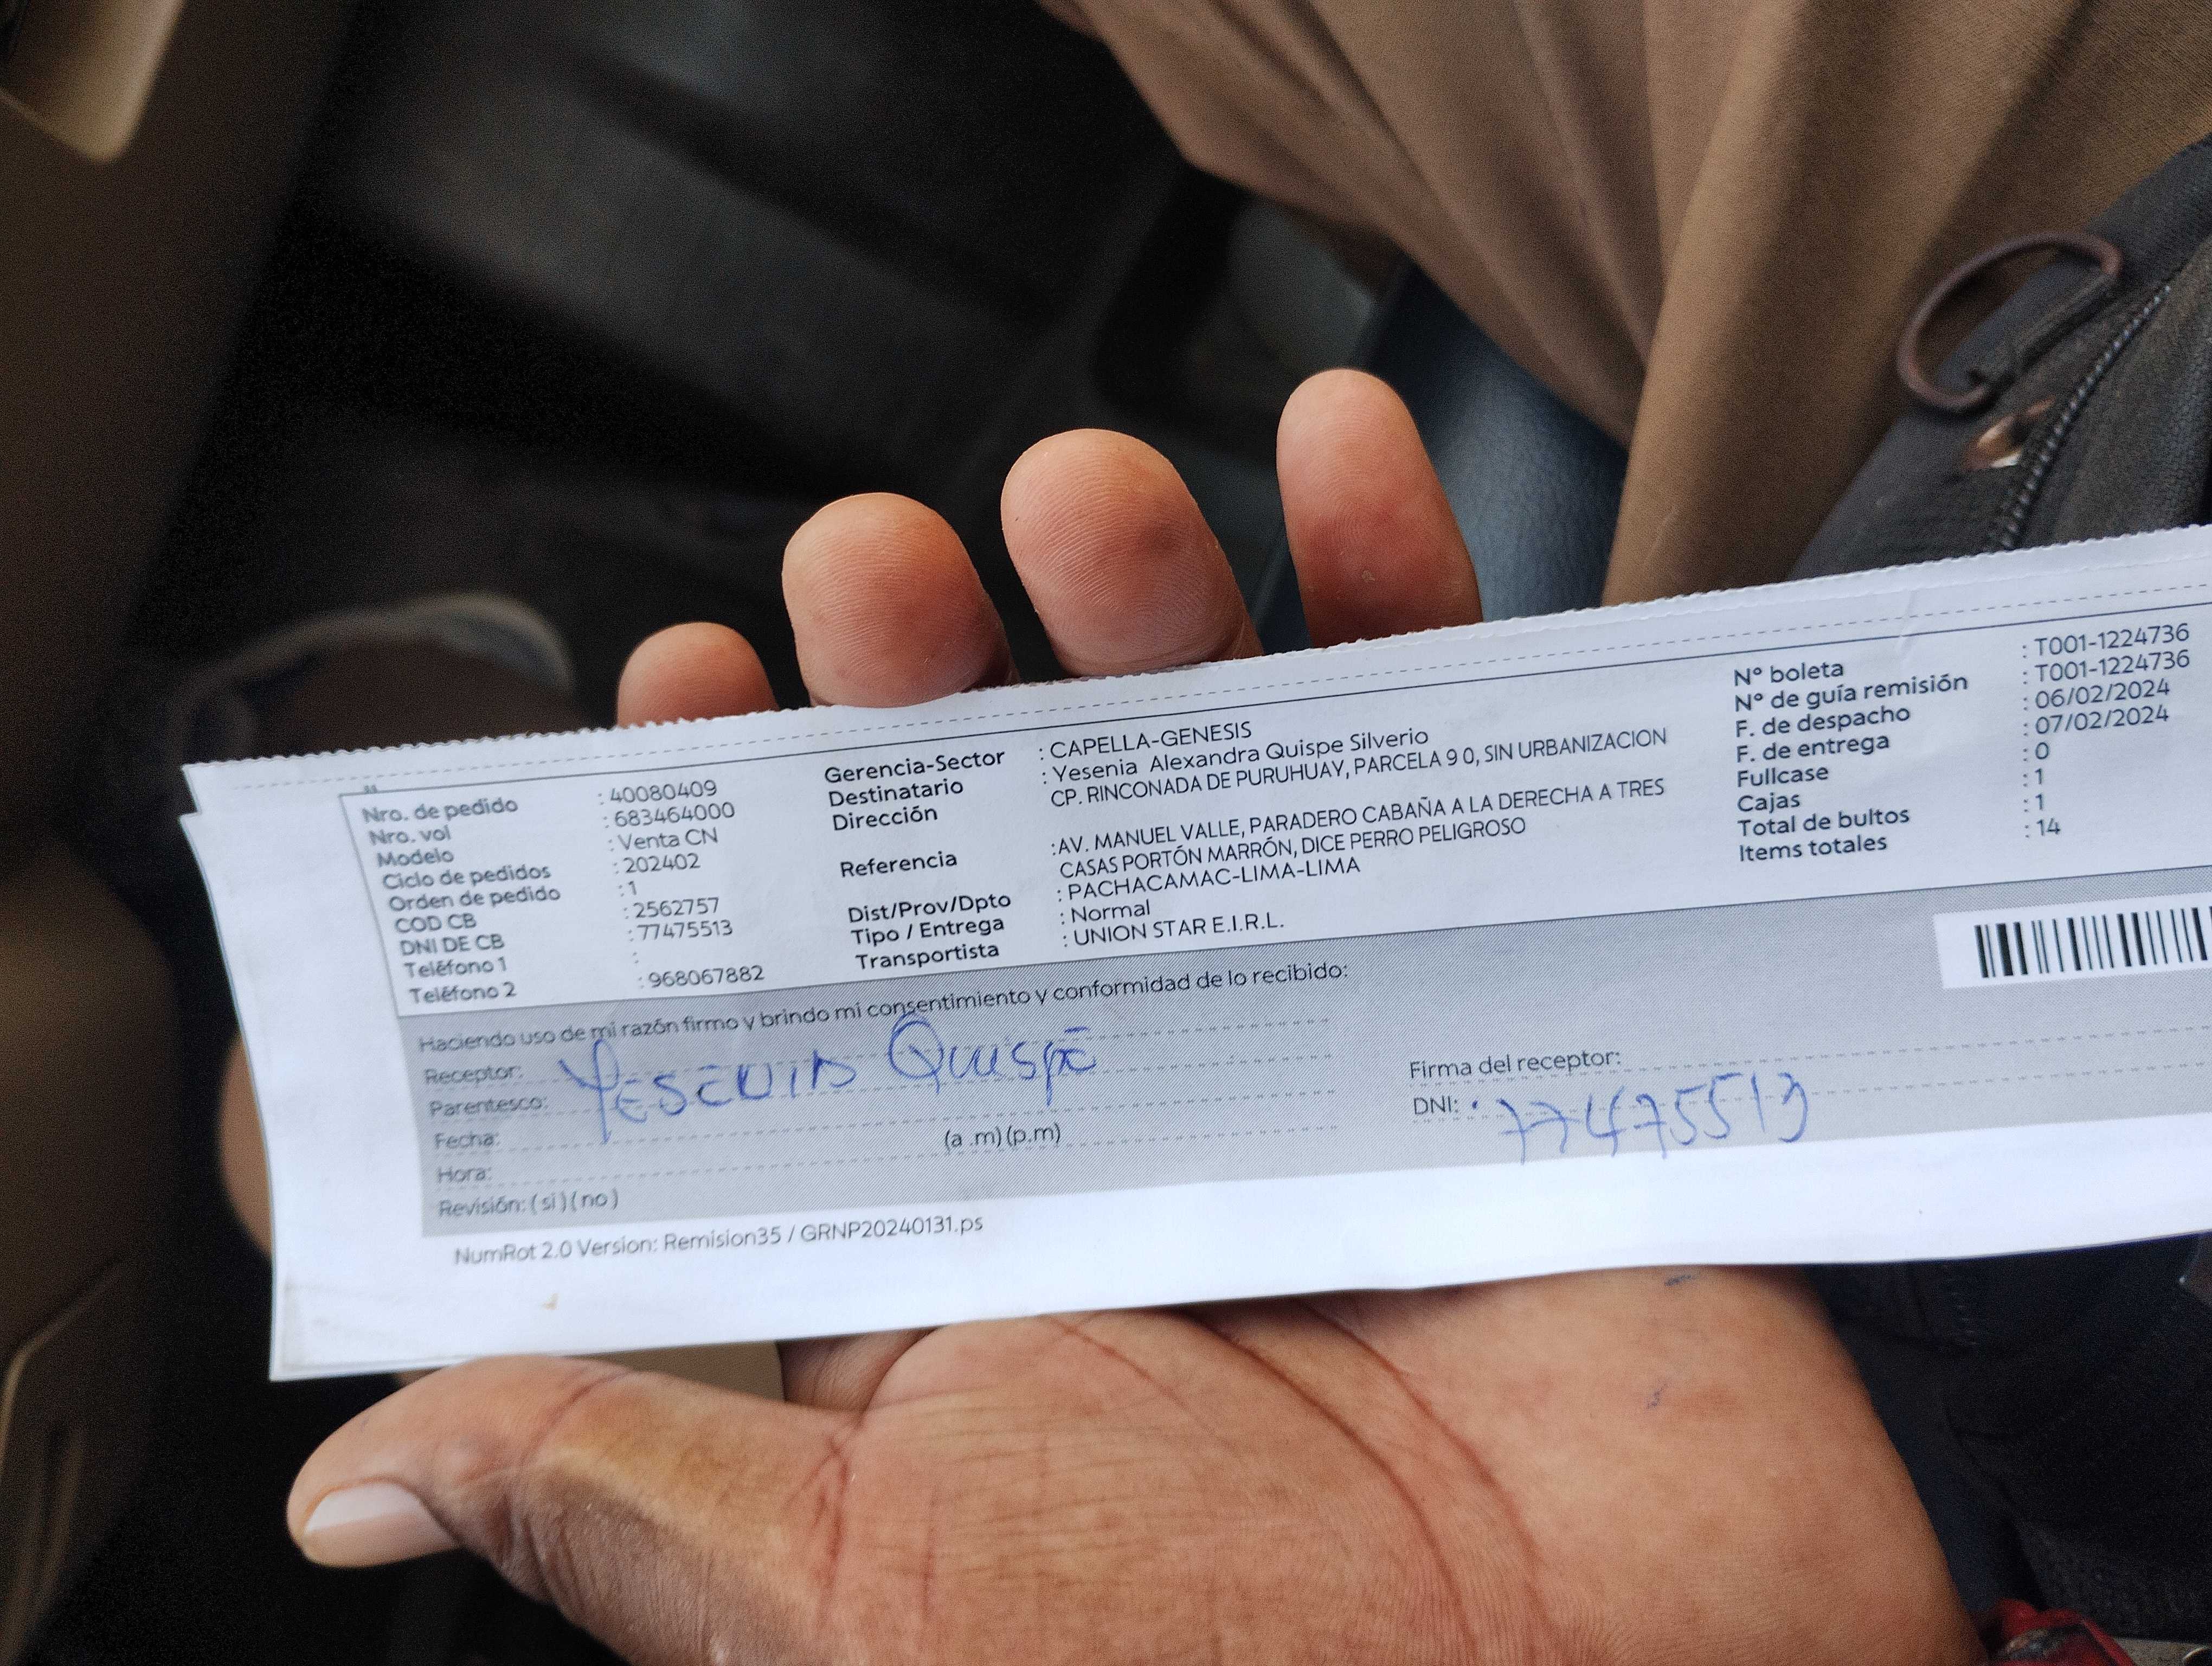 Nro. de pedido : 40080409
Nro. vol : 683464000
Modelo : Venta CN
Ciclo de pedidos : 202402
Orden de pedido : 1
COD CB : 2562757
DNI DE CB : 77475513
Teléfono 1 :
Teléfono 2 : 968067882
Gerencia-Sector : CAPELLA-GENESIS
Destinatario : Yesenia Alexandra Quispe Silverio
Dirección CP. RINCONADA DE PURUHUAY, PARCELA 9 0, SIN URBANIZACION
Referencia :AV. MANUEL VALLE, PARADERO CABAÑA A LA DERECHA A TRES
CASAS PORTÓN MARRÓN, DICE PERRO PELIGROSO
Dist/Prov/Dpto : PACHACAMAC-LIMA-LIMA
Tipo / Entrega : Normal
Transportista : UNION STAR E.I.R.L.
N° boleta : T001-1224736
N° de guía remisión : T001-1224736
F. de despacho : 06/02/2024
F. de entrega : 07/02/2024
Fullcase : 0
Cajas : 1
Total de bultos : 1
Items totales : 14
Haciendo uso de mi razón firmo y brindo mi consentimiento y conformidad de lo recibido:
Receptor: YESENIA Quispe
Parentesco:
Fecha:
Hora: (a .m) (p.m)
Revisión: ( si ) ( no )
Firma del receptor:
DNI: 77475513
NumRot 2.0 Version: Remision35 / GRNP20240131.ps